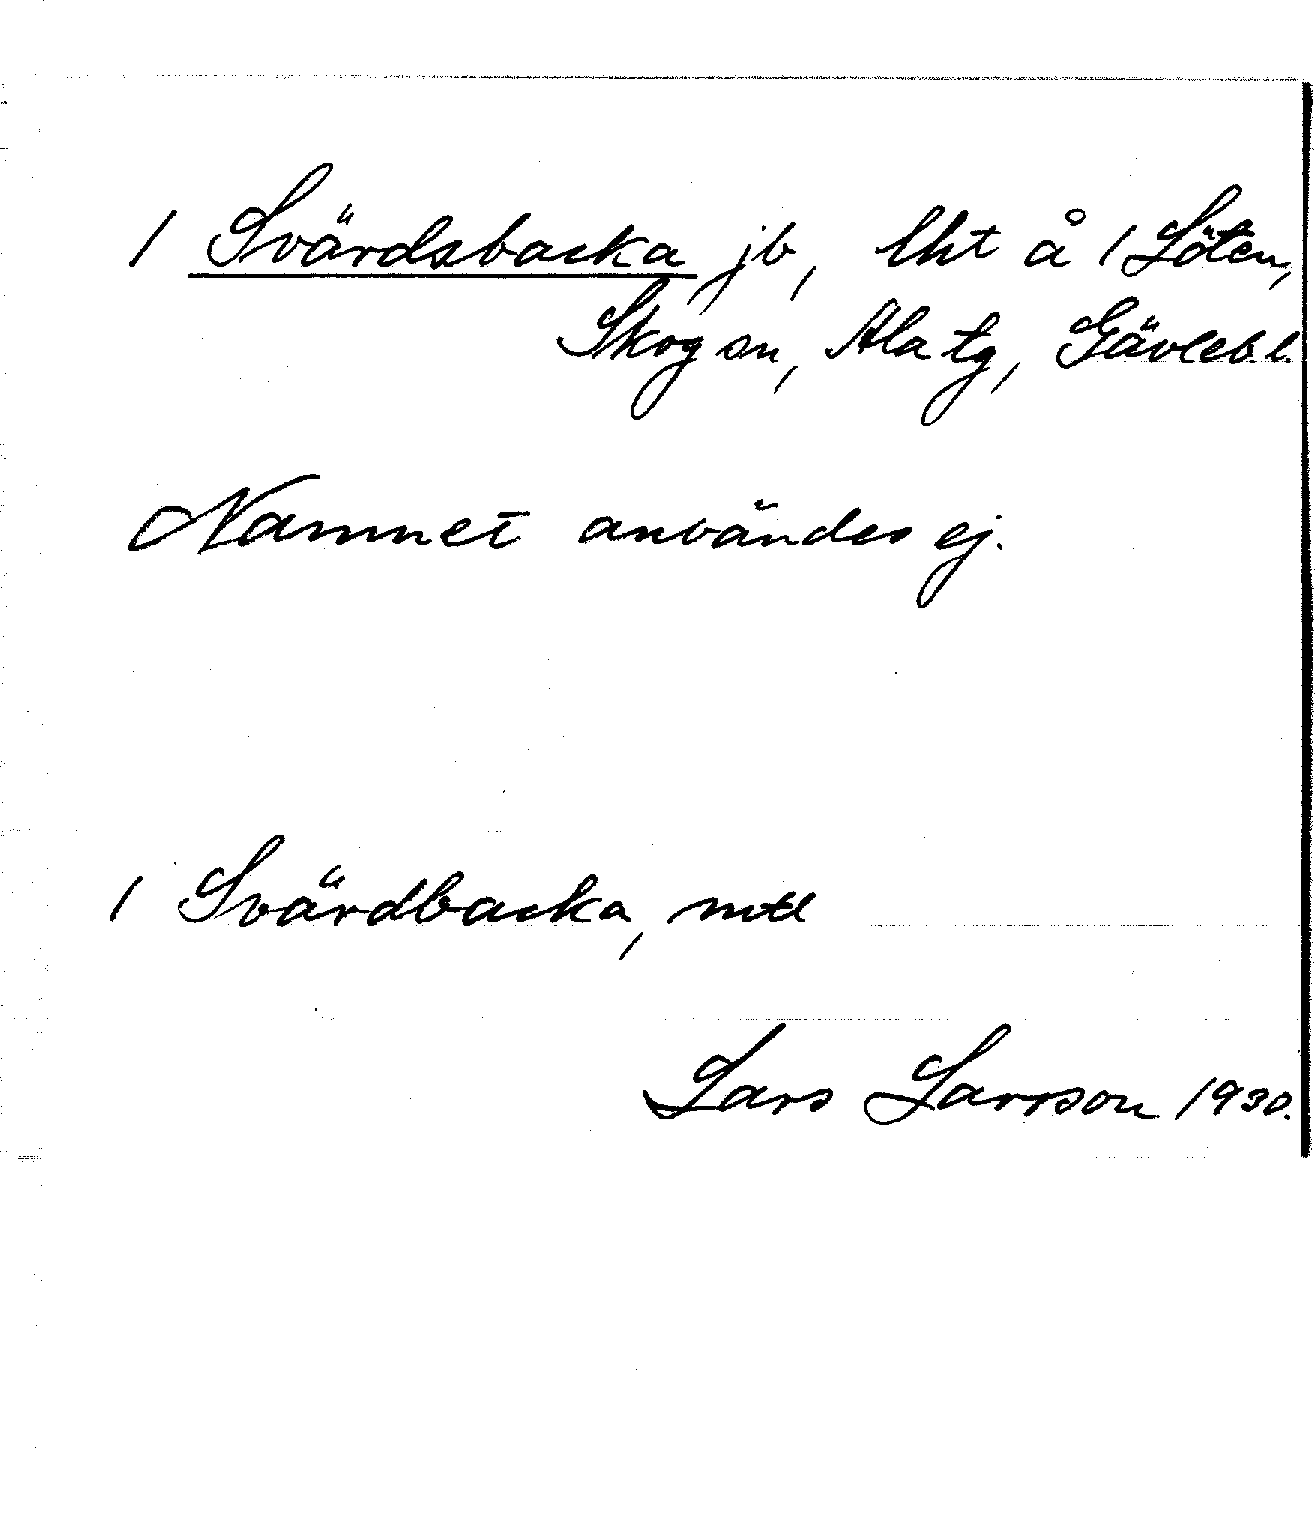 / Svärdsbacka jb, lht å / Löten,
Skog sn, Ala tg, Gävleb.l.
Namnet användes ej.
/ Svärdbacka, mtl
Lars Larsson 1930.